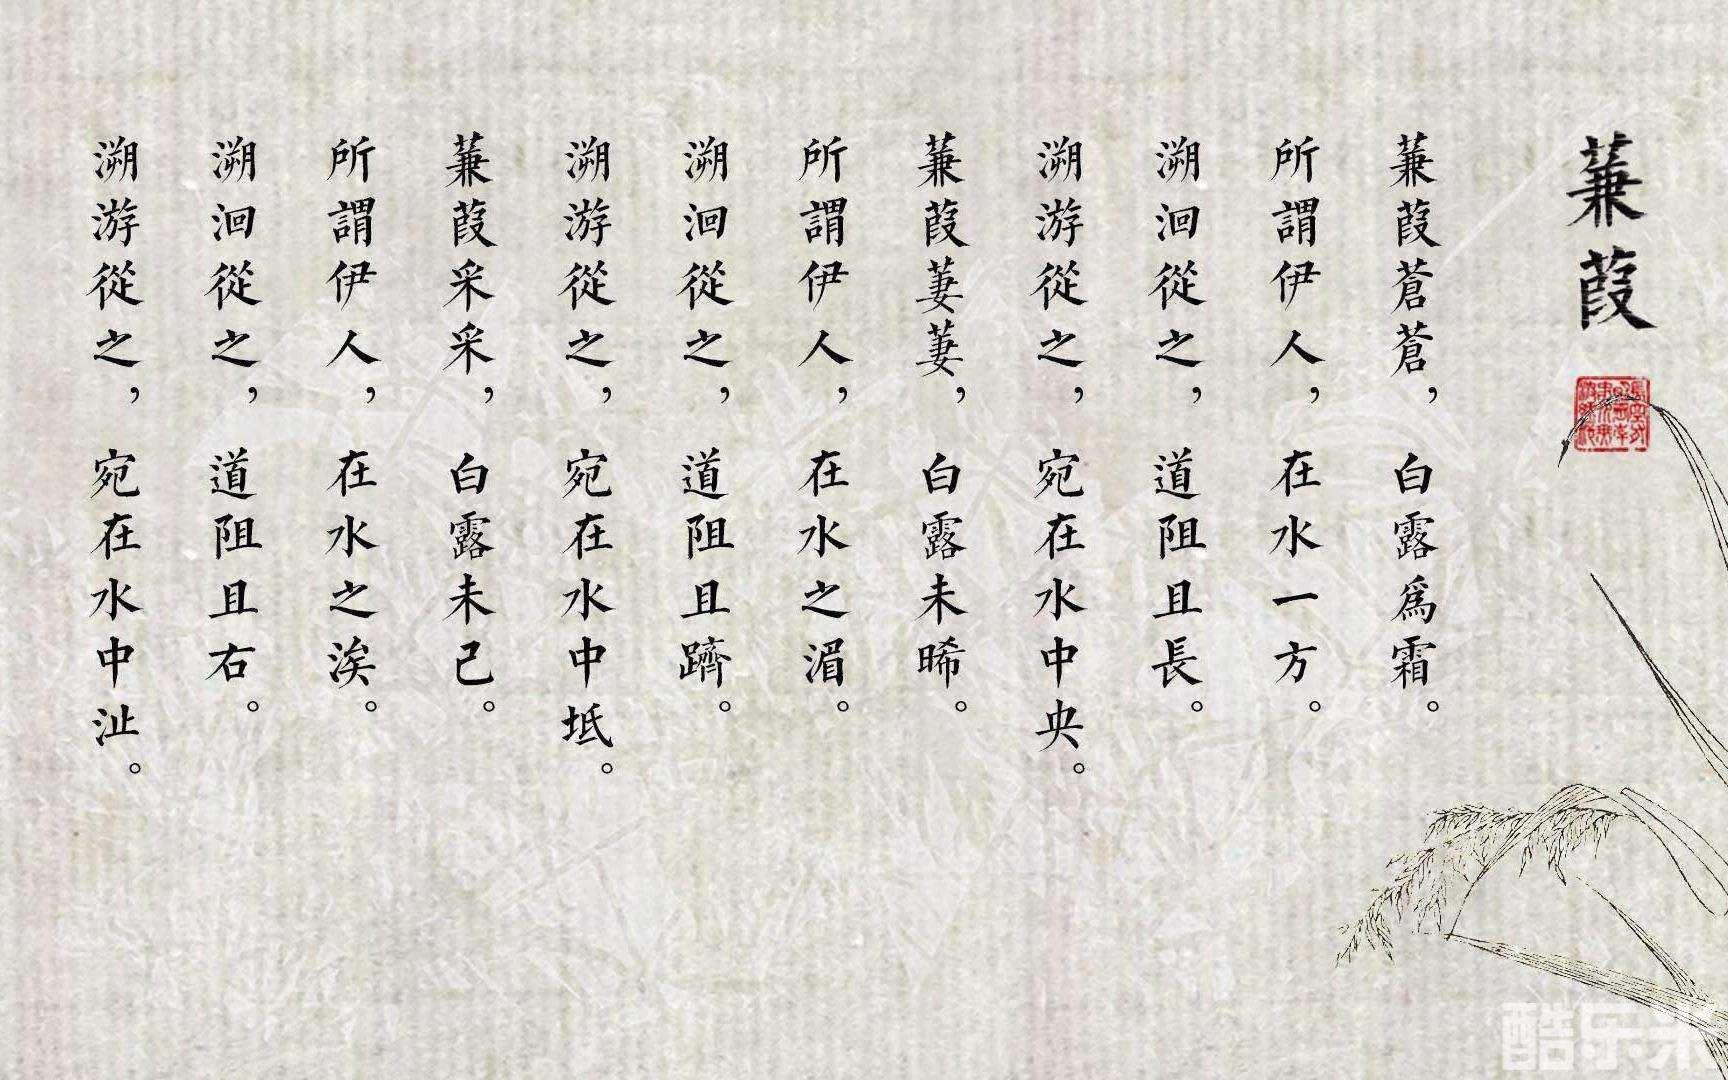 蒹葭
蒹葭蒼蒼，白露爲霜。
所謂伊人，在水一方。
溯洄從之，道阻且長。
溯游從之，宛在水中央。
蒹葭萋萋，白露未晞。
所謂伊人，在水之湄。
溯洄從之，道阻且躋。
溯游從之，宛在水中坻。
蒹葭采采，白露未已。
所謂伊人，在水之涘。
溯洄從之，道阻且右。
溯游從之，宛在水中沚。
酷乐米